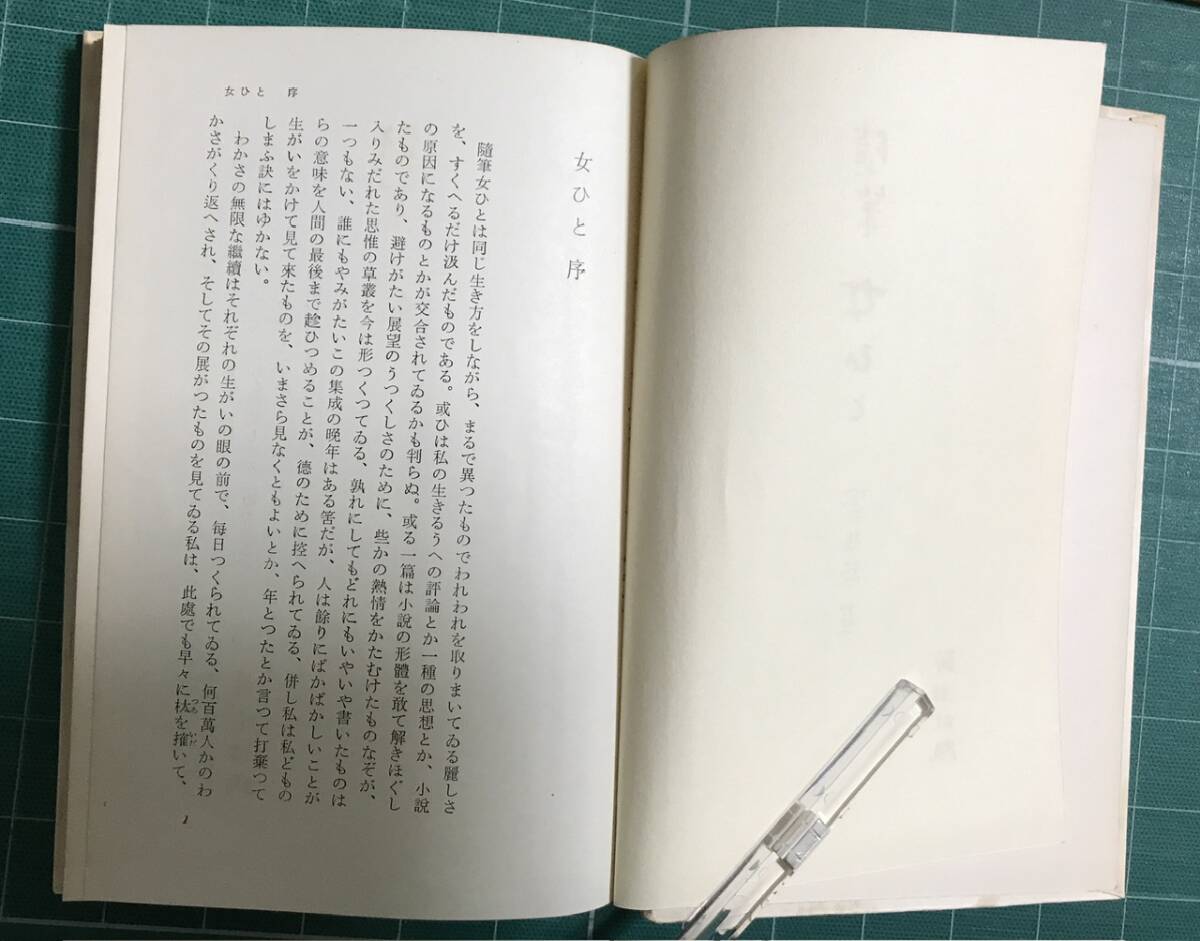 女ひと 序
女ひと 序
隨筆女ひとは同じ生き方をしながら、まるで異つたものでわれわれを取りまいてゐる麗しさ
を、すくへるだけ汲んだものである。或ひは私の生きるうへの評論とか一種の思想とか、小說
の原因になるものとかが交合されてゐるかも判らぬ。或る一篇は小說の形體を敢て解きほぐし
たものであり、避けがたい展望のうつくしさのために、些かの熱情をかたむけたものなぞが、
入りみだれた思惟の草叢を今は形つくつてゐる、孰れにしてもどれにもいやいや書いたものは
一つもない、誰にもやみがたいこの集成の晚年はある筈だが、人は餘りにばかばかしいことが
らの意味を人間の最後まで趁ひつめることが、德のために控へられてゐる、併し私は私どもの
生がいをかけて見て來たものを、いまさら見なくともよいとか、年とつたとか言つて打棄つて
しまふ訣にはゆかない。
わかさの無限な繼續はそれぞれの生がいの眼の前で、每日つくられてゐる、何百萬人かのわ
かさがくり返へされ、そしてその展がつたものを見てゐる私は、此處でも早々に枕を擁いて、
1
隨筆 女ひと